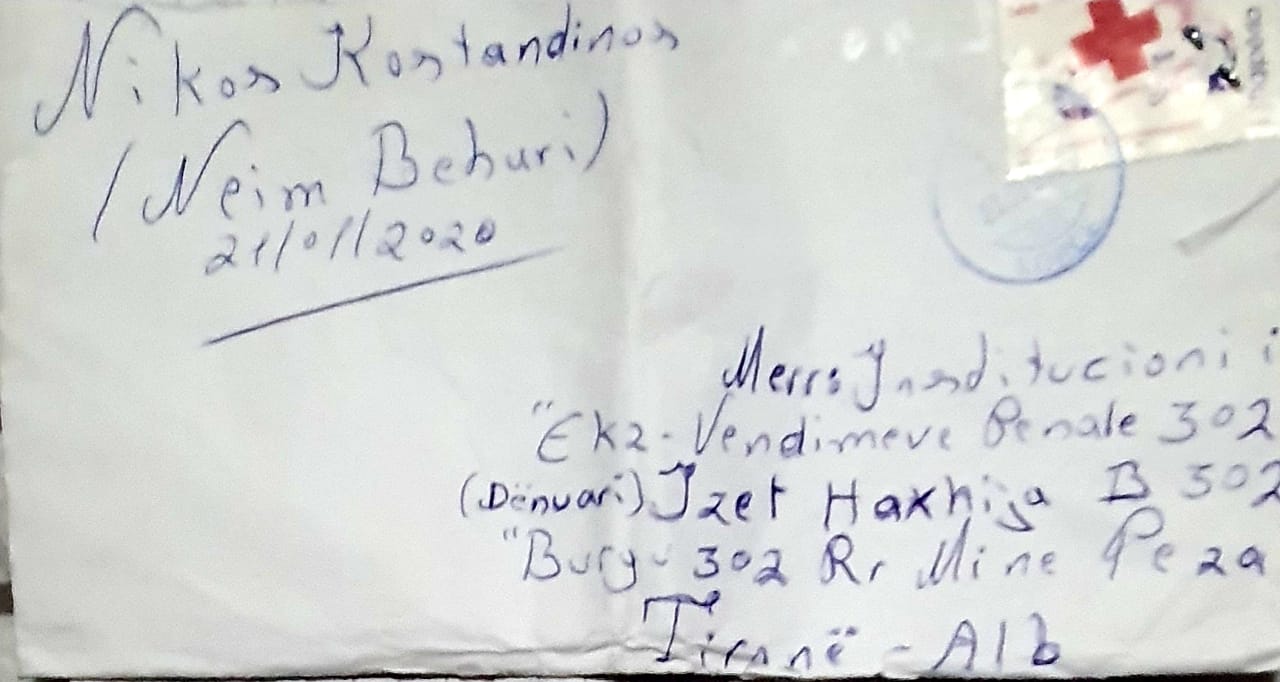 Nikos Kostandinos
(Neim Behuri)
21/01/2020
Merrs: Insditucioni i
"Ekz-Vendimeve Penale 302
(Dënuari) Izet Haxhija B 302
"Burg- 302 Rr Mine Peza
Tiranë - Alb